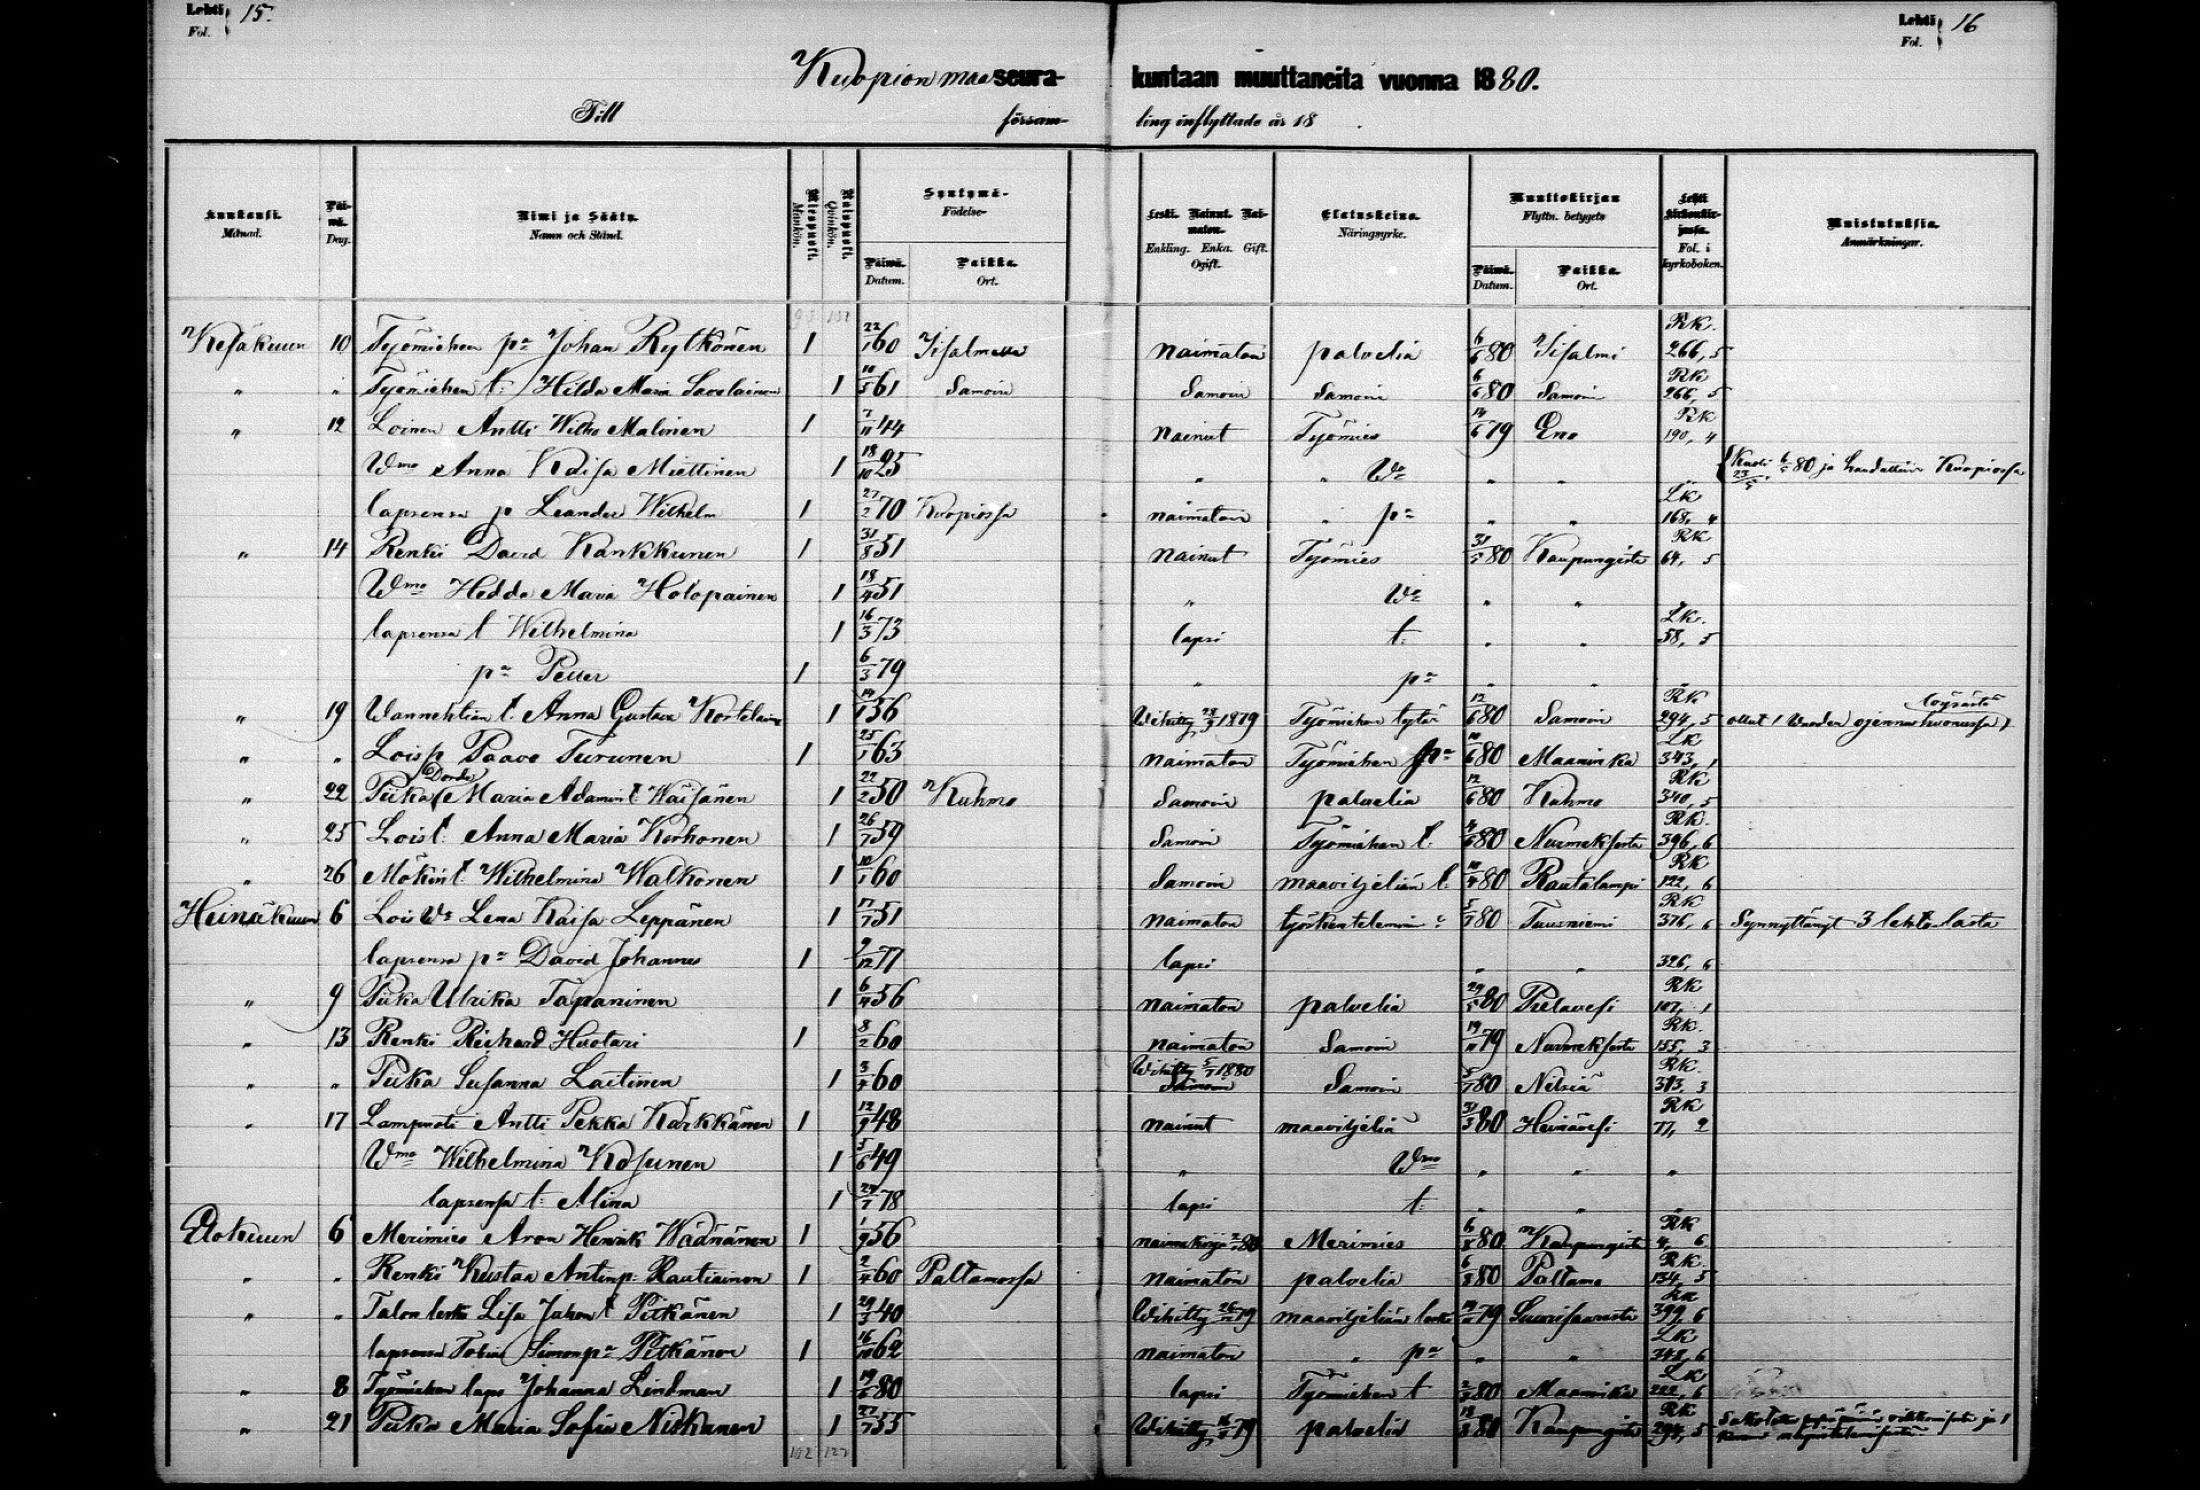 Lehti Fol. 15.
Lehti Fol. 16
Kuopion maaseura- kuntaan muuttaneita vuonna 1880.
Till försam- ling inflyttade år 18 .
Kuukausi. Månad.
Päivä. Dag.
Nimi ja Sääty. Namn och Stånd.
Miespuoli. Mankön.
Naispuoli. Qvinkön.
Syntymä- Födelse-
Päivä. Datum.
Paikka. Ort.
Leski. Nainut. Naimaton. Enkling. Enka. Gift. Ogift.
Elatuskeino. Näringsyrke.
Muuttokirjan Flyttn. betygets
Päivä. Datum.
Paikka. Ort.
Lehti kirkonkirjassa. Fol. i kyrkoboken.
Muistutuksia. Anmärkningar.
Kesäkuun 10 Työmiehen pa Johan Rytkönen 1 22/1 60 Iisalmella naimaton palvelia 6/6 80 Iisalmi RK. 266, 5
" " Työmiehen t: Hilda Maria Savolainen 1 10/5 61 Samoin Samoin Samoin 6/6 80 Samoin RK 266, 5
" 12 Loinen Antti Wilho Malinen 1 7/11 44 nainut Työmies 14/6 79 Eno RK 190, 4
Wmo Anna Kaisa Miettinen 1 18/10 25 " " Wo " " Kuoli 6/5 80 ja haudattiin 23/5 Kuopiossa
lapsensa p Leander Wilhelm 1 27/2 70 Kuopiossa naimaton " pa " " LK 168, 4
" 14 Renki David Kankkunen 1 31/8 51 nainut Työmies 31/5 80 Kaupungista RK 64, 5
Wmo Hedda Maria Holopainen 1 18/4 51 " Wo " " "
lapsensa t Wilhelmina 1 16/3 73 lapsi t: " " LK. 58, 5
pa Petter 1 6/3 79 " pa " " "
" 19 t. Anna Gustava Kortelainen 1 14/1 36 Wihitty 1879 Työmiehen tytär 12/6 80 Samoin RK 294, 5 ollut 1 vuoden ojennushuoneessa
" " Loisp Paavo Turunen 1 25/1 63 naimaton Työmiehen pa 10/6 80 Maaninka LK 343, 1
" 22 Piika Maria Adamint Wäisänen 1 22/2 50 Kuhmo Samoin palvelia 12/6 80 Kuhmo RK 340, 5
" 25 Loist: Anna Maria Korhonen 1 26/7 59 Samoin Työmiehen t. 80 Nurmeksesta RK. 396, 6
" 26 Mökint: Wilhelmina Walkonen 1 10/1 60 Samoin maaviljeliän t: 80 Rautalampi RK 122, 6
Heinäkuun 6 Lois Wo Lena Kaisa Leppänen 1 17/7 51 naimaton 5/7 80 Tuusniemi RK 376, 6 Synnyttänyt 3 lehtolasta
lapsensa pa David Johannes 1 9/12 77 lapsi " " 326, 6
" 9 Piika Ulrika Tapaninen 1 6/4 56 naimaton palvelia 29/5 80 Pielavesi RK 107, 1
" 13 Renki Richard Huotari 1 8/2 60 naimaton Samoin 19/11 79 Nurmeksesta RK. 155, 3
" " Piika Susanna Laitinen 1 60 Wihitty 5/7 1880 Samoin Samoin 5/7 80 Nilsiä RK. 313, 3
" 17 Lampuoti Antti Pekka Kärkkänen 1 12/9 48 nainut maaviljeliä 31/3 80 Heinävesi RK 77, 2
Wmo Wilhelmina Kosunen 1 5/6 49 " Wmo " " "
lapsensa t: Alina 1 78 lapsi t: " " "
Elokuun 6 Merimies Aron Henrik Wäänänen 1 1/9 56 80 Merimies 6/8 80 Kaupungista RK 4, 6
" " Renki Kustaa Antinp: Rautiainen 1 2/4 60 Paltamossa naimaton palvelia 6/8 80 Paltamo RK. 134, 5
" " Talon leski Lisa Juhont Pitkänen 1 29/3 40 Wihitty 79 maaviljeliän leski 79 399, 6
lapsensa Tobias Simonpa Pitkänen 1 16/10 62 naimaton " pa " " LK 348, 6
" 8 Työmiehen laps Johanna Lindman 1 19/6 80 lapsi Työmiehen t 80 Maaninka LK 222, 6
" 21 Piika Maria Sofia Niskanen 1 55 Wihitty 79 palvelia 80 Kaupungista RK 294, 5
102 127